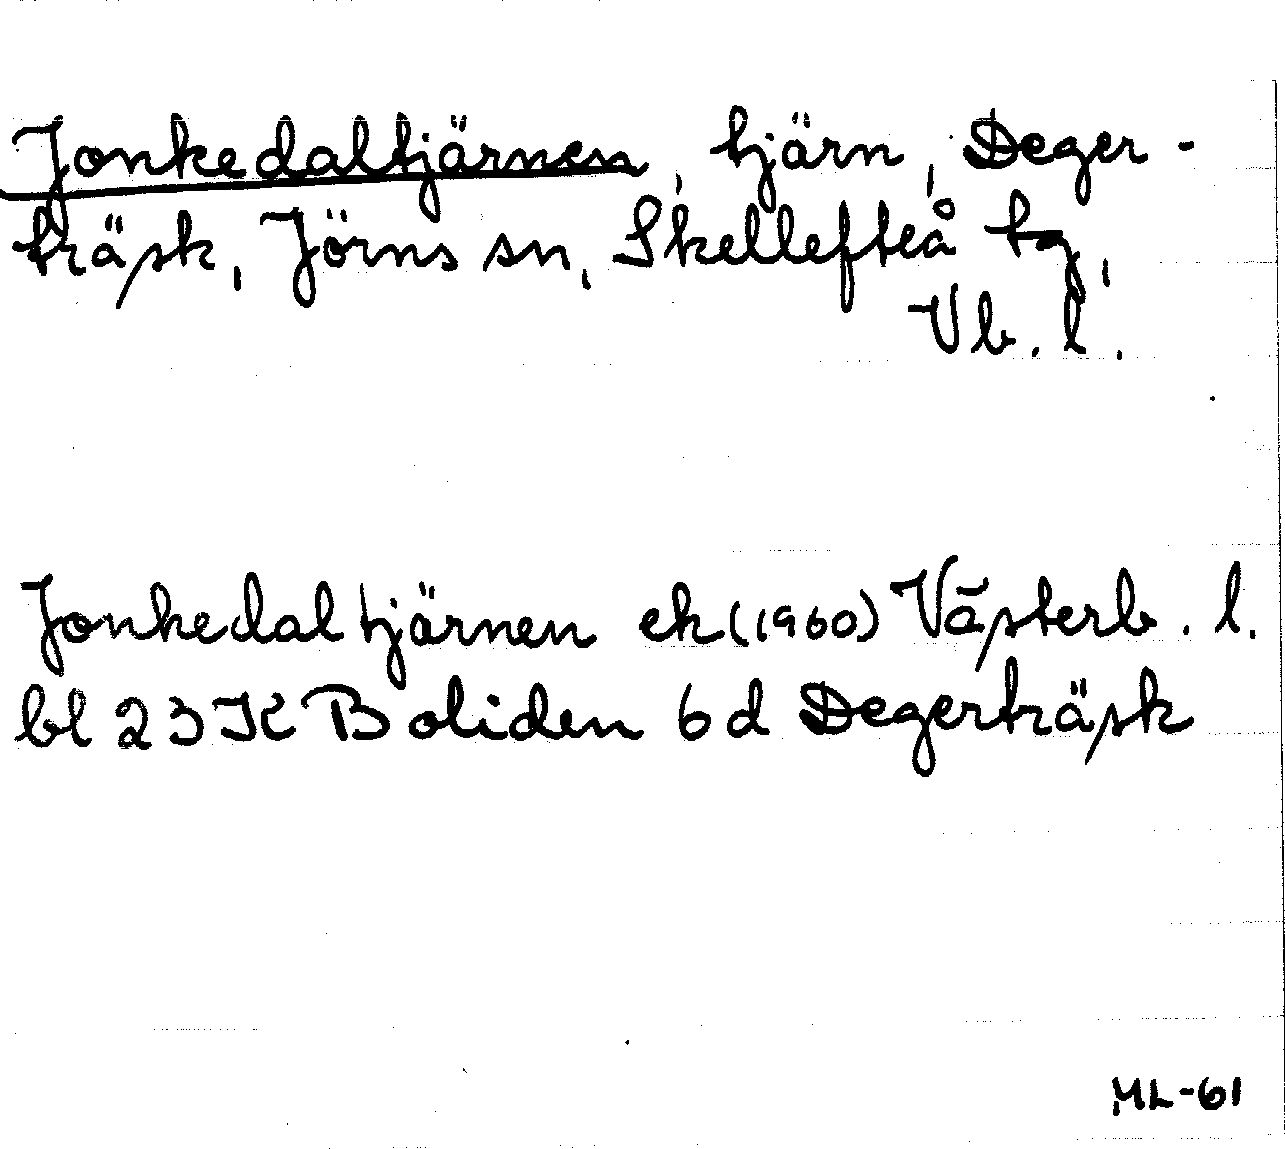 Jonkedaltjärnen, tjärn, Deger-
träsk, Jörns sn, Skellefteå tg,
Vb. l.
Jonkedaltjärnen ek (1960) Västerb. l.
bl 23 K Boliden 6 d Degerträsk
ML-61